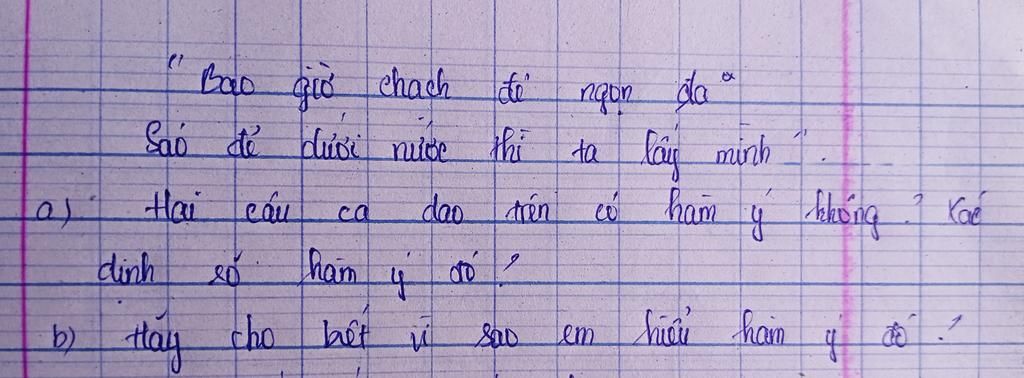 "Bao giờ chạch đẻ ngọn đa
Sáo đẻ dưới nước thì ta lấy mình".
a) Hai câu ca dao trên có hàm ý không? Xác
định số hàm ý đó?
b) Hãy cho bết vì sao em hiểu hàm ý đó?